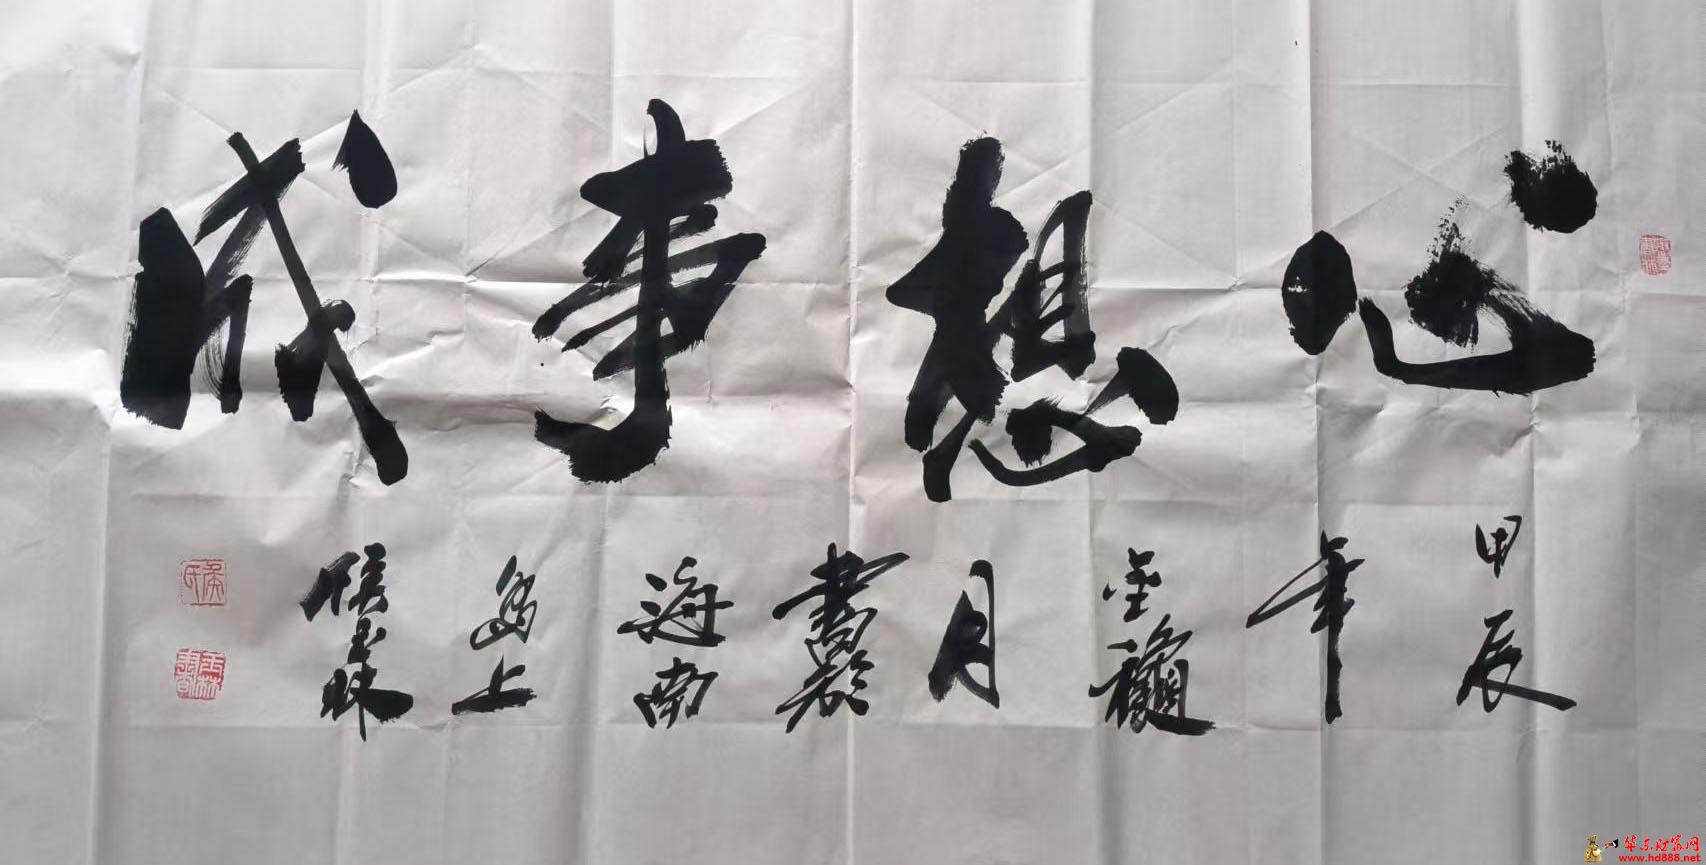 心想事成
甲辰年金龝月書於海南島上侯玉林
侯氏
华东财富网
www.hd888.net